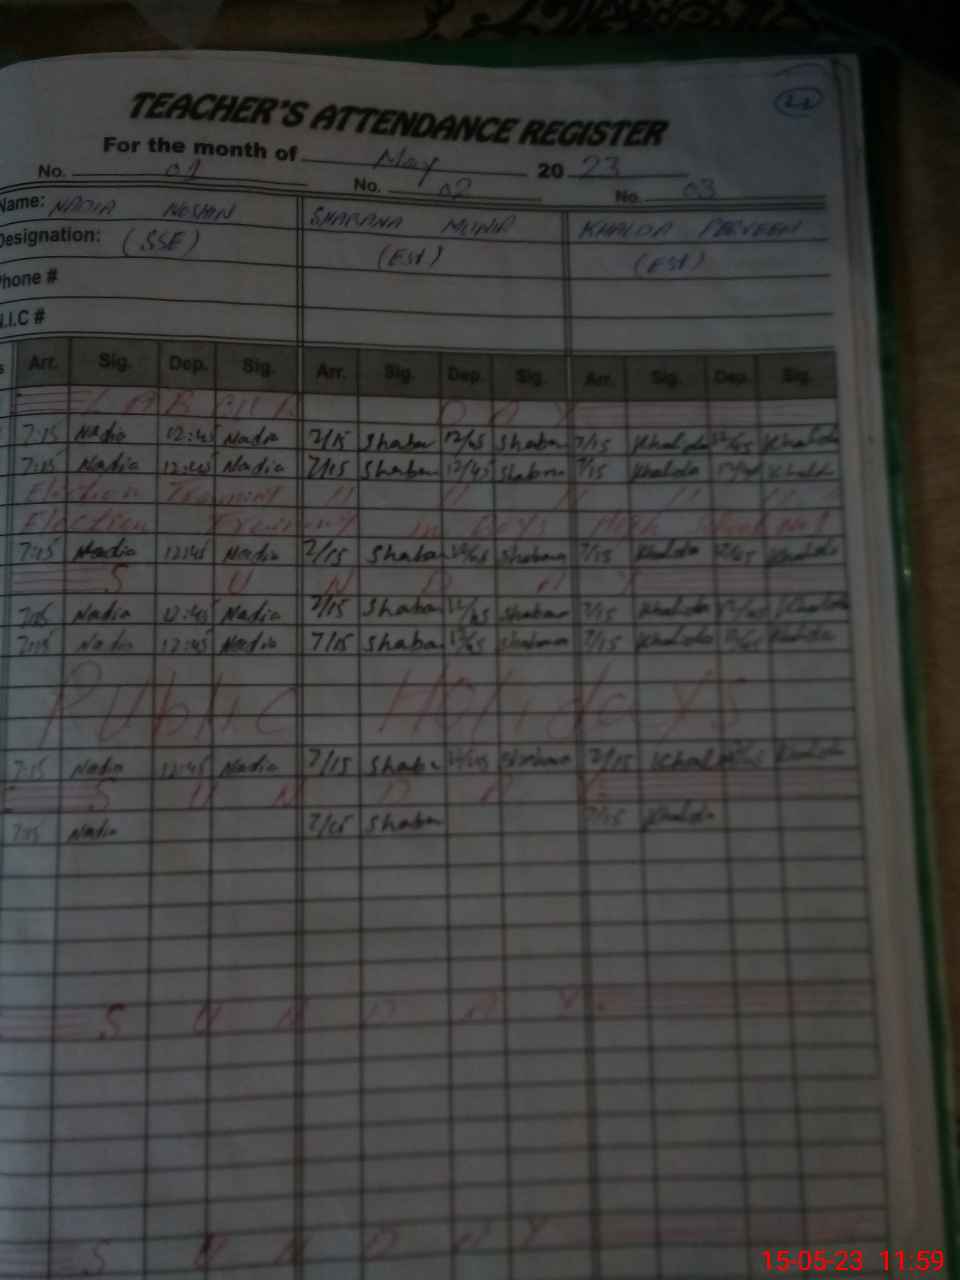 TEACHER'S ATTENDANCE REGISTER
For the month of May 20 23
No. 01 No. 02 No. 03
Name: NADIA NOSHIN SHABANA MUNIR KHALDA PERVEEN
Designation: (SSE) (Est) (Est)
Phone #
N.I.C #
Arr. Sig. Dep. Sig. Arr. Sig. Dep. Sig. Arr. Sig. Dep. Sig.
LABOUR DAY
7:15 Nadia 12:45 Nadia 7/15 Shaban 12/45 Shaban 7/15 Khalda 12/45 Khalda
7:15 Nadia 12:45 Nadia 7/15 Shaban 12/45 Shaban 7/15 Khalda 12/45 Khalda
Election Training " " " " "
Election Training in Boys High School No1
7:15 Nadia 12:45 Nadia 7/15 Shaban 12/45 Shaban 7/15 Khalda 12/45 Khalda
SUNDAY
7:15 Nadia 12:45 Nadia 7/15 Shaban 12/45 Shaban 7/15 Khalda 12/45 Khalda
7:15 Nadia 12:45 Nadia 7/15 Shaban 12/45 Shaban 7/15 Khalda 12/45 Khalda
Public Holidays
7:15 Nadia 12:45 Nadia 7/15 Shaban 12/45 Shaban 7/15 Khalda Khalda
SUNDAY
7:15 Nadia 7/15 Shaban 7/15 Khalda
SUNDAY
SUNDAY
15-05-23 11:59